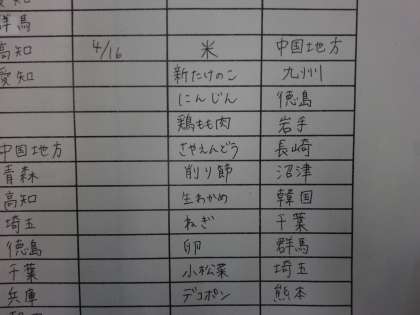 群馬
高知 4/16 米 中国地方
愛知 新たけのこ 九州
にんじん 徳島
鶏もも肉 岩手
中国地方 さやえんどう 長崎
青森 削り節 沼津
高知 生わかめ 韓国
埼玉 ねぎ 千葉
徳島 卵 群馬
千葉 小松菜 埼玉
兵庫 デコポン 熊本